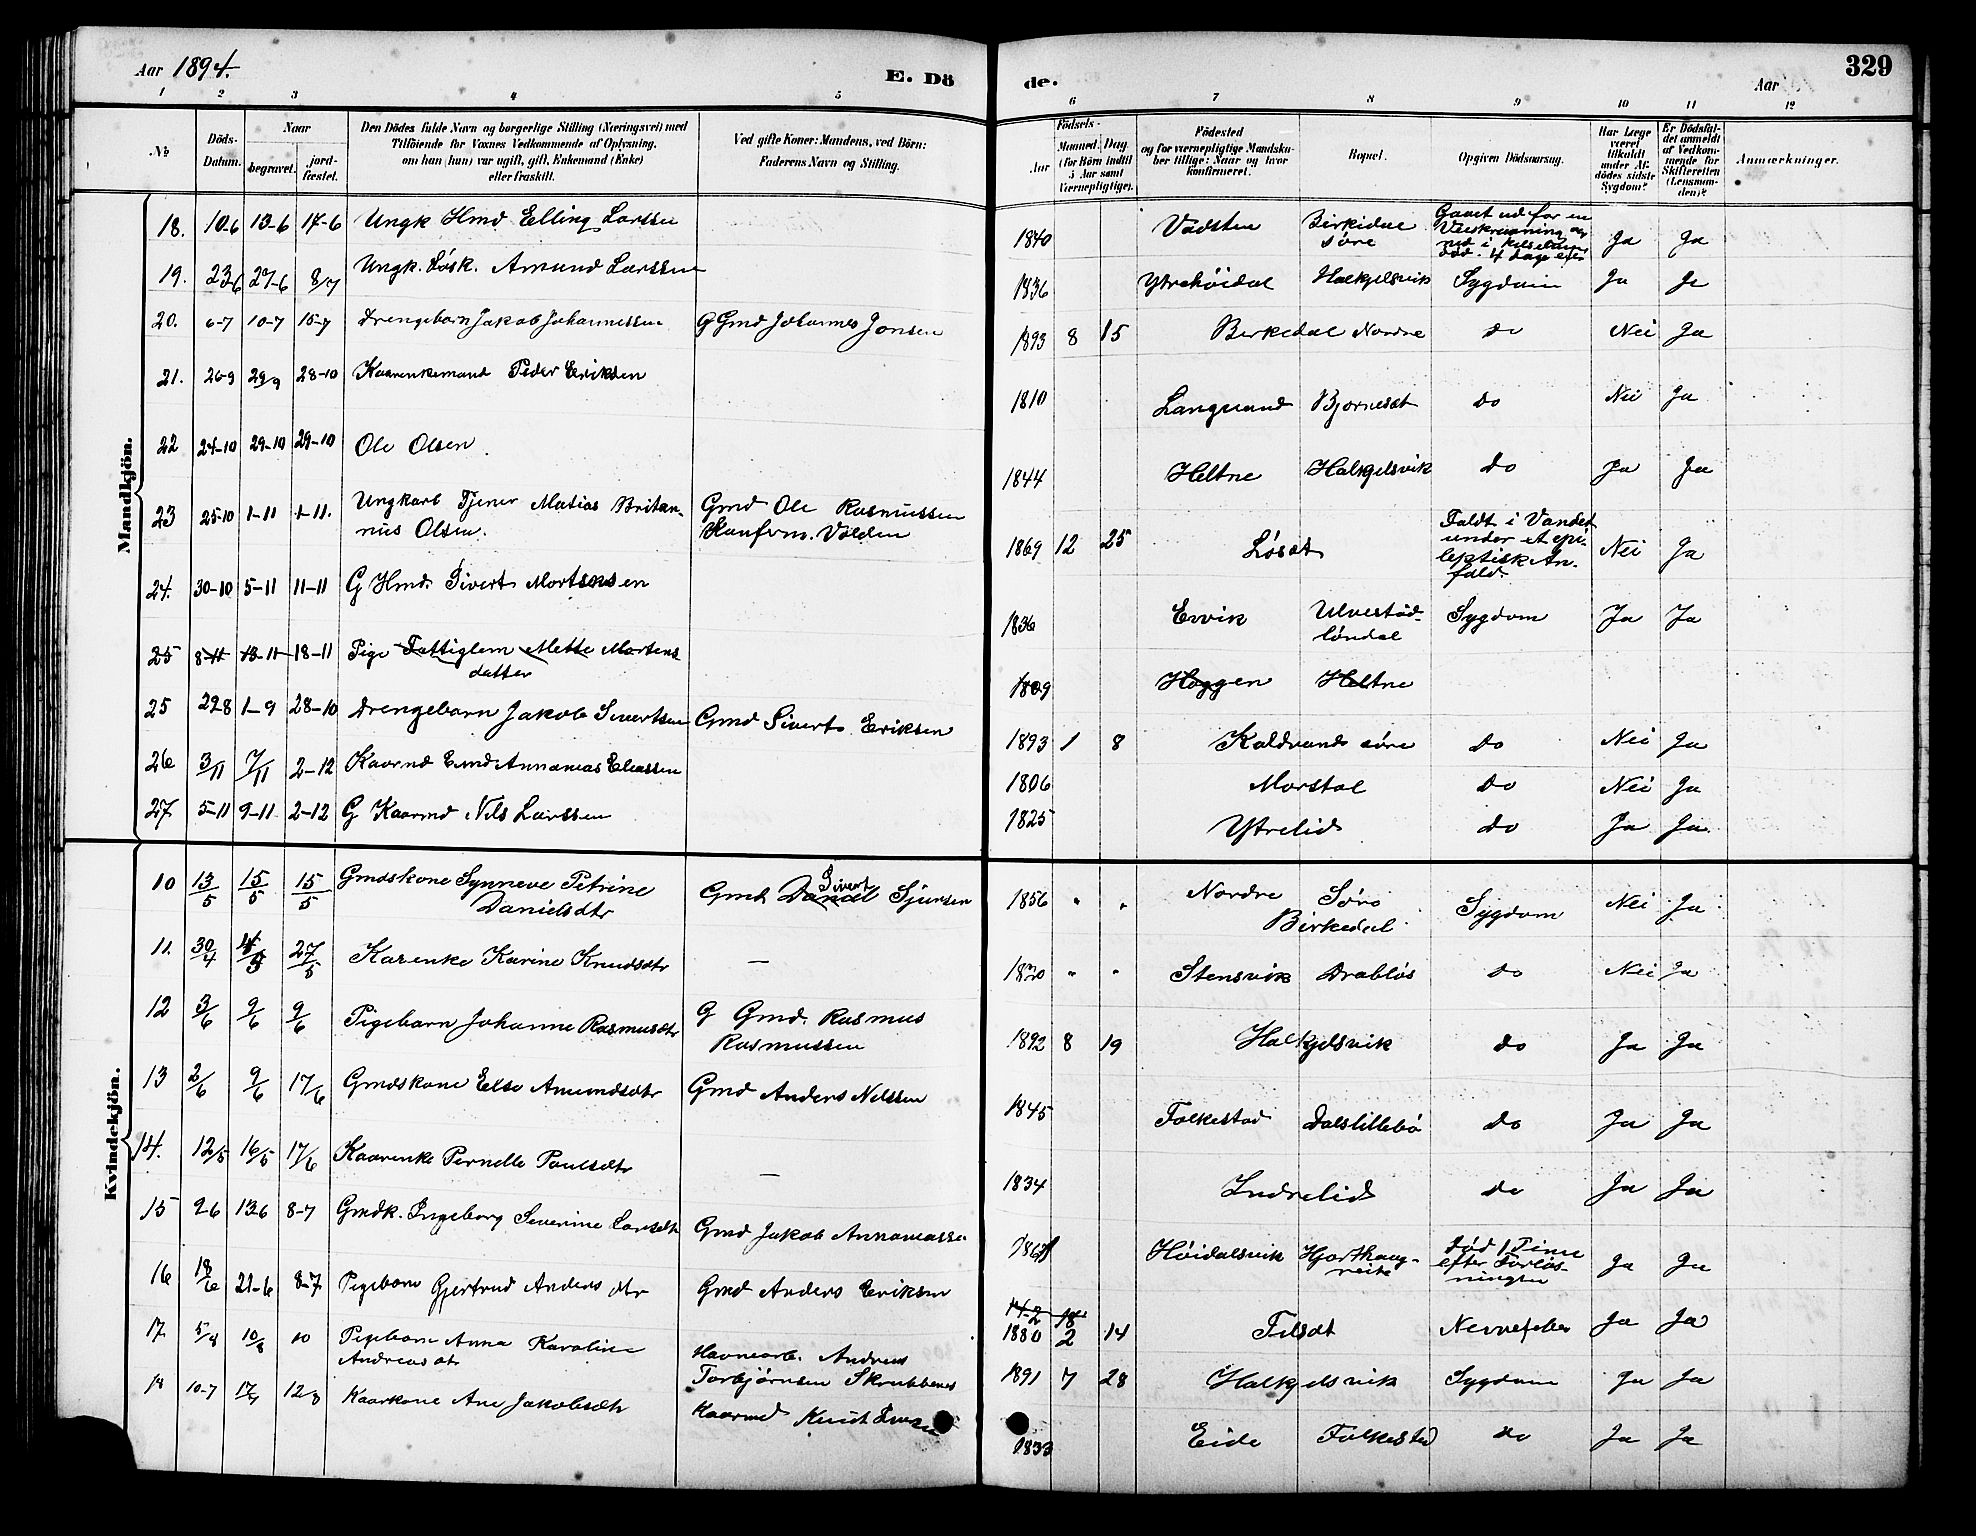 Aar 1894.
E. Dö
de.
Aar
329
1 2 3 4 5 6 7 8 9 10 11 12
No
Döds-
Datum.
Naar
begravet.
jord-
fæstet.
Den Dödes fulde Navn og borgerlige Stilling (Næringsvei) med
Tilföiende for Voxnes Vedkommende af Oplysning,
om han (hun) var ugift, gift, Enkemand (Enke)
eller fraskilt.
Ved gifte Koner: Mandens, ved Börn:
Faderens Navn og Stilling.
Födsels-
Aar
Maaned. Dag.
(for Börn indtil
5 Aar samt
Værnepligtige).
Födested
og for værnepligtige Mandsku-
ber tillige: Naar og hvor
konfirmeret.
Bopæl.
Opgiven Dödsaarsag.
Har Læge
været
tilkaldt
under Af-
dödes sidste
Sygdom?
Er Dödsfal-
det anmeldt
af Vedkom-
mende for
Skifteretten
(Lensman-
den)?
Anmærkninger.
Mandkjön.
18. 10-6 13-6 17-6 Ungk Hmd Elling Larssen 1840 Vadsten Birkidal søre Gaaet ud for en Ja Ja
19. 23-6 27-6 8/7 Ungk. Løsk. Amund Larssen 1836 Ytrehöidal Halkjelsvik Sygdom Ja Ja
20. 6-7 10-7 15-7 Drengebarn Jakob Johannessen G Gmd Johannes Jonsen 1893 8 15 Birkedal Nordre do Nei Ja
21. 26-9 29/9 28-10 Kaarenkemand Peder Eriksen 1810 Langvand Bjørneset do Nei Ja
22 24-10 29-10 29-10 Ole Olsen. 1844 Heltne Halkjelsvik do Ja Ja
23 25-10 1-11 1-11. Ungkarl Tjener Matias Britan-
nus Olsen. Gmd Ole Rasmussen
1869 12 25 Løsæt Faldt i Vandet
under et epi-
leptisk An-
fald. Nei Ja
24. 30-10 5-11 11-11 G Hmd. Sivert Mortensen 1836 Ervik Ulvestad-
løndal Sygdom Ja Ja
25 8-11 13-11 18-11 Pige Fattiglem Mette Mortens
datter 1809 Hoggen Heltne
25 29-8 1-9 28-10 Drengebarn Jakob Sivertsen Gmd Sivert Eriksen 1893 1 8 Kaldvand søre do Nei Ja
26 3/11 7/11 2-12 Kaarmd Annanias Eliassen 1806 Morstøl do Nei Ja
27. 5-11 9-11 2-12 G Kaarmd Nils Larssen 1825 Ytrelid do Ja Ja
Kvindekjön.
10 13/5 15/5 15/5 Gmdskone Synneve Petrine
Danielsdtr Gmd Daniel Sivert Sjursen 1856 " " Nordre Søre
Birkedal Sygdom Nei Ja
11. 30/4 4/5 27/5 Kaarenke Karine Knudsdtr — 1820 " " Stensvik Drabløs do Nei Ja
12 3/6 9/6 9/6 Pigebarn Johanne Rasmusdtr G Gmd. Rasmus
Rasmussen 1892 8 19 Halkjelsvik do Ja Ja
13 2/6 9/6 17/6 Gmdskone Else Amundsdtr Gmd Anders Nilssen 1845 Folkestad Dalslillebø do Ja Ja
14. 12/5 16/5 17/6 Kaarenke Pernelle Paulsdtr — 1834 Indrelid do Ja Ja
15 2-6 13-6 8-7 Gmdk. Ingeborg Severine Larsdtr Gmd Jakob Annaniassen Höidalsvik Hjorthaug-
død 1 Time
efter Forløs-
ningen Ja Ja
16 18/6 21-6 8-7 Pigebarn Gjertrud Anders dtr Gmd Anders Eriksen 14-2 18
1880 2 14 Filsæt Nervefeber Ja Ja
17. 5/8 10/8 10 Pigebarn Anna Karoline
Andreas dtr Havnearb. Andreas
Torbjørnsen Skrubbenes 1891 7 28 Halkjelsvik Sygdom Ja Ja
18 10-7 17/7 12-8 Kaarkone Ane Jakobsdtr Kaarmd Knut 1833 Eide Folkestad do Ja Ja